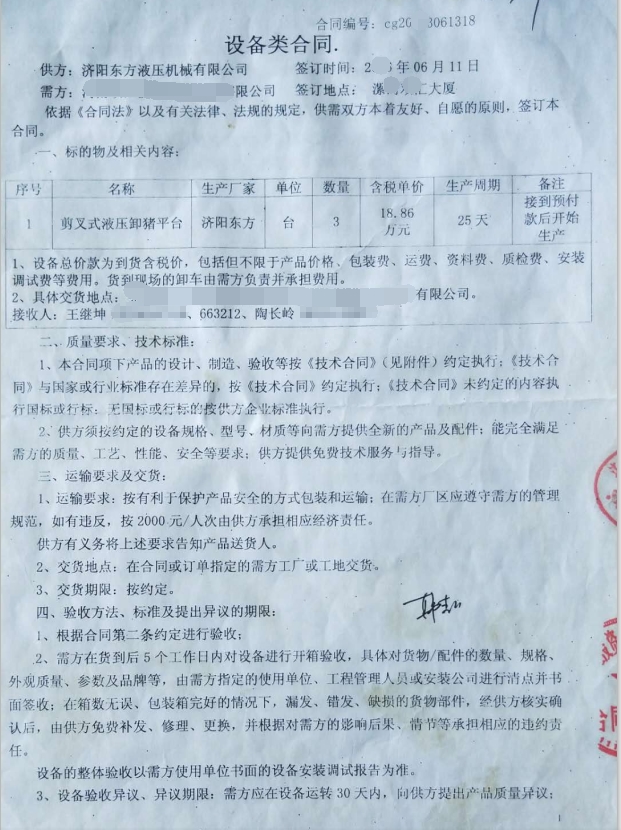 合同编号: cg20 3061318
设备类合同.
供方: 济阳东方液压机械有限公司 签订时间: 2 年 06 月 11 日
需方: 有限公司 签订地点: 汇大厦
依据《合同法》以及有关法律、法规的规定，供需双方本着友好、自愿的原则，签订本
合同。
一、标的物及相关内容:
序号 名称 生产厂家 单位 数量 含税单价 生产周期 备注
1 剪叉式液压卸猪平台 济阳东方 台 3 18.86万元 25 天 接到预付款后开始生产
1、设备总价款为到货含税价，包括但不限于产品价格、包装费、运费、资料费、质检费、安装
调试费等费用。货到现场的卸车由需方负责并承担费用。
2、具体交货地点: 有限公司。
接收人: 王继坤 、663212、陶长岭
二、质量要求、技术标准:
1、本合同项下产品的设计、制造、验收等按《技术合同》（见附件）约定执行;《技术合
同》与国家或行业标准存在差异的，按《技术合同》约定执行;《技术合同》未约定的内容执
行国标或行标; 无国标或行标的按供方企业标准执行。
2、供方须按约定的设备规格、型号、材质等向需方提供全新的产品及配件; 能完全满足
需方的质量、工艺、性能、安全等要求; 供方提供免费技术服务与指导。
三、运输要求及交货:
1、运输要求: 按有利于保护产品安全的方式包装和运输; 在需方厂区应遵守需方的管理
规范，如有违反，按 2000 元/人次由供方承担相应经济责任。
供方有义务将上述要求告知产品送货人。
2、交货地点: 在合同或订单指定的需方工厂或工地交货。
3、交货期限: 按约定。
四、验收方法、标准及提出异议的期限:
1、根据合同第二条约定进行验收;
2、需方在货到后 5 个工作日内对设备进行开箱验收，具体对货物/配件的数量、规格、
外观质量、参数及品牌等，由需方指定的使用单位、工程管理人员或安装公司进行清点并书
面签收; 在箱数无误、包装箱完好的情况下，漏发、错发、缺损的货物部件，经供方核实确
认后，由供方免费补发、修理、更换，并根据对需方的影响后果、情节等承担相应的违约责
任。
设备的整体验收以需方使用单位书面的设备安装调试报告为准。
3、设备验收异议、异议期限: 需方应在设备运转 30 天内，向供方提出产品质量异议;
1